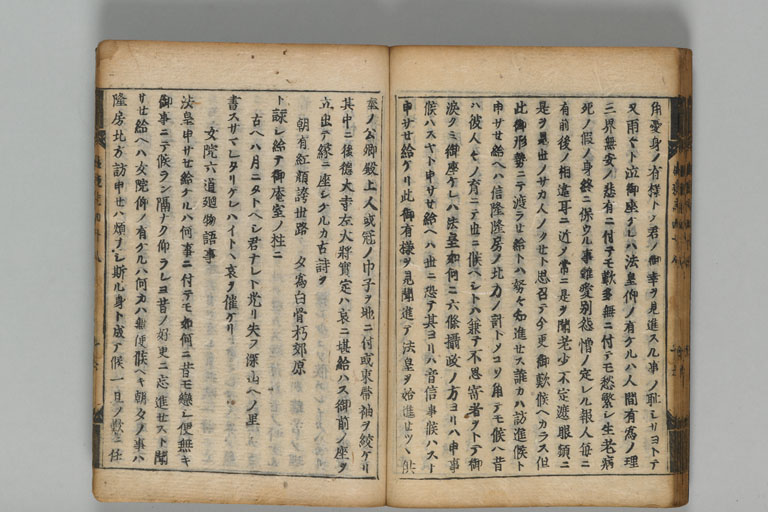 角憂身ノ有樣トノ君ノ御幸ヲ見進スル事ノ恥シサヨトテ
又雨々ト泣御座ケレハ法皇仰ノ有ケルハ人間有爲ノ理
三界無安ノ悲有ニ付テモ歎多無ニ付テモ愁繁シ生老病
死ノ假ノ身終ニ保ツル事難愛別怨憎ノ定レル報人每ニ
有前後ノ相違耳ニ近ク常ニ是ヲ聞老少不定遮眼頻ニ
是ヲ見世ノサカ人ノクセト思召テ今更御歎候ヘカラス但
此御形勢ニテ渡ラせ給トハ努々知進セス誰カハ訪進候ト
申サせ給ヘハ信隆隆房ノ北方ノ計トメコソ角テモ候ヘ昔
ハ彼人々ノ育ニテ世ニ候ヘシトハ兼テ不思寄者ヲトテ御
淚クミ御座ケレハ法皇如何ニ六條攝政ノ方ヨリハ申事
候ハスヤト申サせ給ヘハ世ニ恐テ其ヨリハ音信事候ハスト
申サせ給ケリ此御有樣ヲ見聞進テ法皇ヲ始進せツヽ供
奉ノ公卿殿上人或冠ノ巾子ヲ地ニ付或束帶ノ袖ヲ絞ケリ
其中ニ後德大寺左大將實定ハ哀ニ堪給ハス御前ノ座ヲ
立出テ緣ニ座シケルカ古詩ヲ
朝有紅顏誇世路　夕爲白骨朽郊原
ト詠シ給テ御庵室ノ柱ニ
古ヘハ月ニタトヘシ君ナレト光リ失フ深山ヘノ里
書スサマレタリケレハイトヽ哀ヲ催ケリ
女院六道廻物語事
法皇申サせ給ケルハ何事ニ付テモ如何ニ昔モ戀シ便無キ
御事ニテ候ラン隔ナク仰ラレヨ昔ノ好更ニ忘進せスト聞
サせ給ヘハ女院仰ノ有ケルハ何カハ無便候ヘキ朝夕ノ事ハ
隆房北方訪申せハ煩ナシ斯ル身ト成テ候一旦ノ歎ハ任